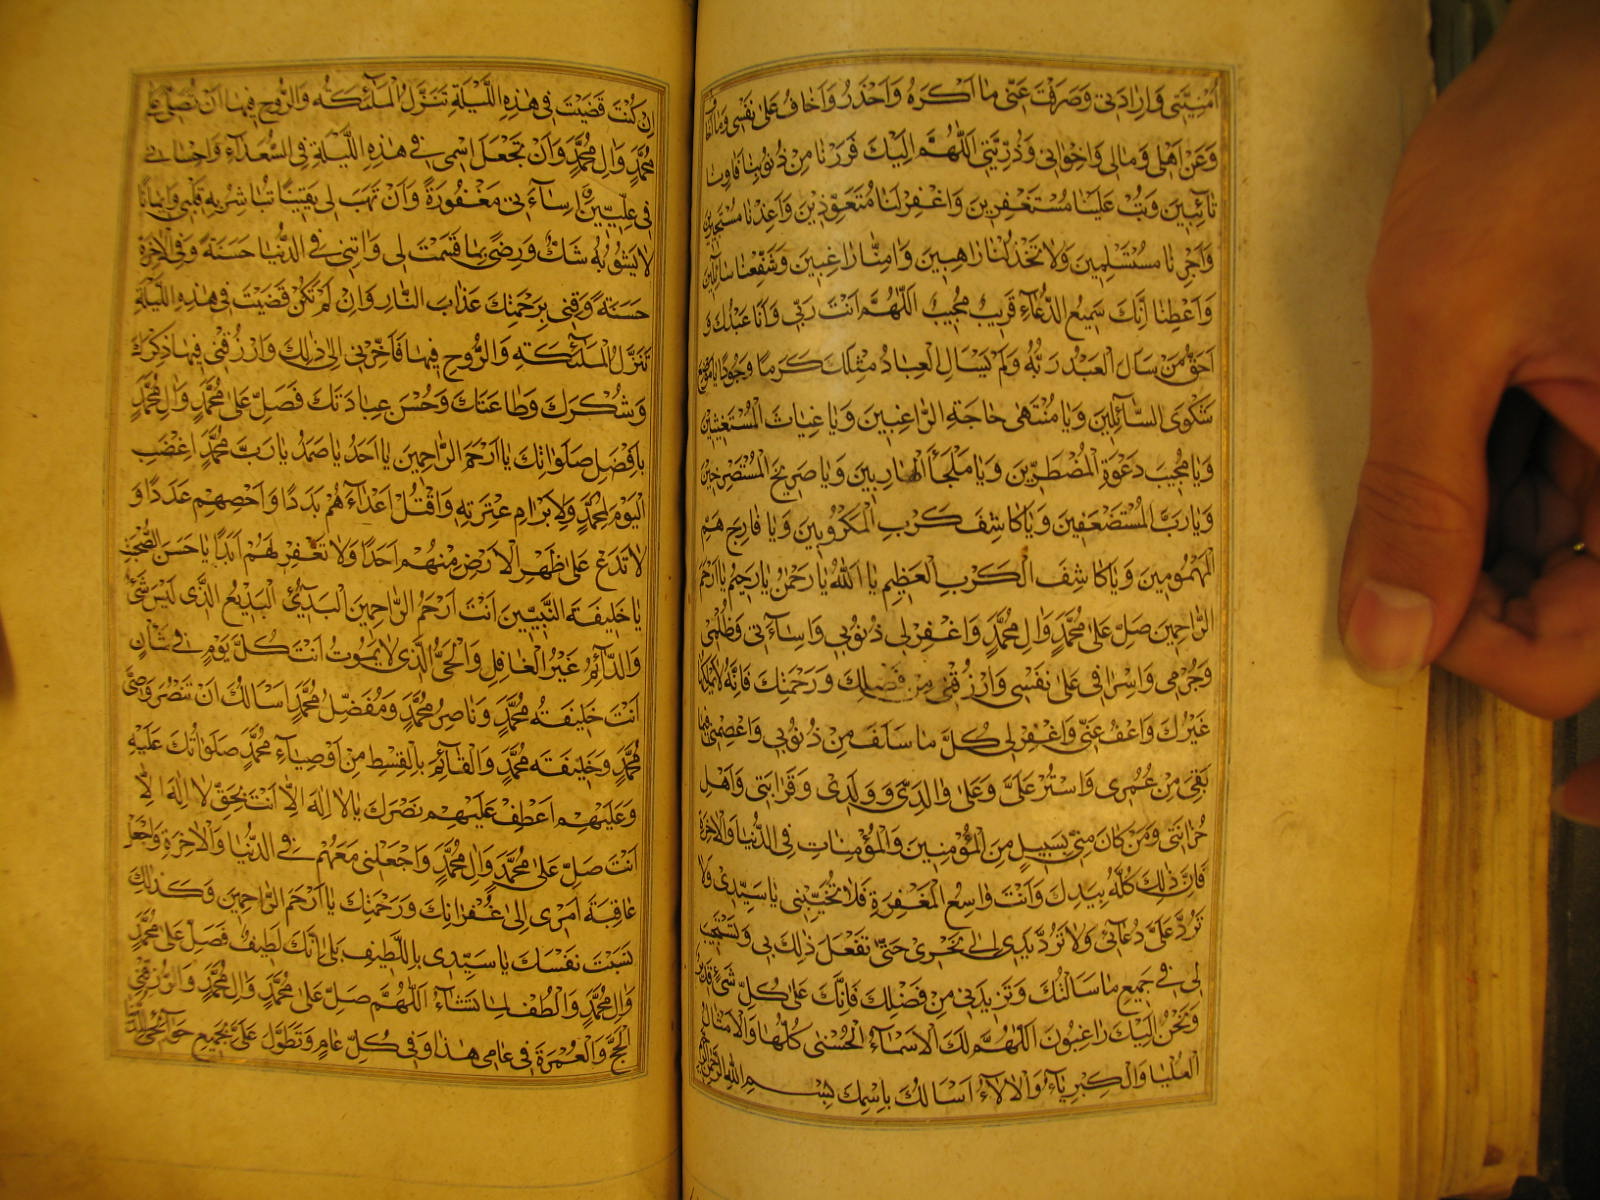 اُمْنِيَّتي وَاِرادَتي وَصَرَفْتَ عَنّي ما اَكْرَهُ وَاَحْذَرُ وَاَخافُ عَلى نَفْسي وَمالا اَخافُ
وَعَنْ اَهْلي وَمالي وَاِخْواني وَذُرِّيَّتي اَللّهُمَّ اِلَيْكَ فَرَرْنا مِنْ ذُنُوبِنا فَآوِنا
تائِبينَ وَتُبْ عَلَيْنا مُسْتَغْفِرينَ وَاغْفِرْ لَنا مُتَعَوِّذينَ وَاَعِذْنا مُسْتَجيرينَ
وَاَجِرْنا مُسْتَسْلِمينَ وَلا تَخْذُلْنا راهِبينَ وَآمِنّا راغِبينَ وَشَفِّعْنا سائِلينَ
وَاَعْطِنا اِنَّكَ سَميعُ الدُّعآءِ قَريبٌ مُجيبٌ اَللّهُمَّ اَنْتَ رَبّي وَاَنَا عَبْدُكَ وَ
اَحَقُّ مَنْ سَاَلَ الْعَبْدُ رَبُّهُ وَلَمْ يَسْاَلِ الْعِبادُ مِثْلَكَ كَرَمًا وَجُودًا يا مَوْضِعَ
شَكْوَى السّآئِلينَ وَيا مُنْتَهى حاجَةِ الرّاغِبينَ وَيا غِياثَ الْمُسْتَغيثينَ
وَيا مُجيبَ دَعْوَةِ الْمُضْطَرّينَ وَيا مَلْجَأَ الْهارِبينَ وَيا صَريخَ الْمُسْتَصْرِخينَ
وَيا رَبَّ الْمُسْتَضْعَفينَ وَيا كاشِفَ كَرْبِ الْمَكْرُوبينَ وَيا فارِجَ هَمِّ
الْمَهْمُومينَ وَيا كاشِفَ الْكَرْبِ الْعَظيمِ يا اَللهُ يا رَحْمنُ يا رَحيمُ يا اَرْحَمَ
الرّاحِمينَ صَلِّ عَلى مُحَمَّدٍ وَآلِ مُحَمَّدٍ وَاغْفِرْ لي ذُنُوبي وَاِسآءَتي وَظُلْمي
وَجُرْمي وَاِسْرافي عَلى نَفْسي وَارْزُقْني مِنْ فَضْلِكَ وَرَحْمَتِكَ فَاِنَّهُ لا يَمْلِكُها
غَيْرُكَ وَاعْفُ عَنّي وَاغْفِرْ لي كُلَّ ما سَلَفَ مِنْ ذُنُوبي وَاعْصِمْني فيما
بَقِيَ مِنْ عُمْري وَاسْتُرْ عَلَيَّ وَعَلى والِدَيَّ وَوَلَدي وَقَرابَتي وَاَهْلِ
حُزانَتي وَمَنْ كانَ مِنّي بِسَبيلٍ مِنَ الْمُؤْمِنينَ وَالْمُؤْمِناتِ فِي الدُّنْيا وَالْآخِرَةِ
فَاِنَّ ذلِكَ كُلَّهُ بِيَدِكَ وَاَنْتَ واسِعُ الْمَغْفِرَةِ فَلا تُخَيِّبْني يا سَيِّدي وَلا
تَرُدَّ عَلَيَّ دُعآئي وَلا تَرُدَّ يَدي اِلى نَحْري حَتّى تَفْعَلَ ذلِكَ بي وَتَسْتَجيبَ
لي في جَميعِ ما سَاَلْتُكَ وَتَزيدَني مِنْ فَضْلِكَ فَاِنَّكَ عَلى كُلِّ شَيْءٍ قَديرٌ
وَنَحْنُ اِلَيْكَ راغِبُونَ اَللّهُمَّ لَكَ الْاَسْمآءُ الْحُسْنى كُلُّها وَالْاَمْثالُ
الْعُلْيا وَالْكِبْرِيآءُ وَالْآلآءُ اَسْاَلُكَ بِاسْمِكَ بِسْمِ اللهِ الرَّحْمنِ الرَّحيمِ
اِنْ كُنْتَ قَضَيْتَ في هذِهِ اللَّيْلَةِ تَنَزُّلَ الْمَلآئِكَةِ وَالرُّوحِ فيها اَنْ تُصَلِّيَ عَلى
مُحَمَّدٍ وَآلِ مُحَمَّدٍ وَاَنْ تَجْعَلَ اسْمي في هذِهِ اللَّيْلَةِ فِي السُّعَدآءِ وَاِحْساني
في عِلِّيّينَ وَاِسآءَتي مَغْفُورَةً وَاَنْ تَهَبَ لي يَقينًا تُباشِرُ بِهِ قَلْبي وَايمانًا
لا يَشُوبُهُ شَكٌّ وَرِضًى بِما قَسَمْتَ لي وَآتِني فِي الدُّنْيا حَسَنَةً وَفِي الْآخِرَةِ
حَسَنَةً وَقِني بِرَحْمَتِكَ عَذابَ النّارِ وَاِنْ لَمْ تَكُنْ قَضَيْتَ في هذِهِ اللَّيْلَةِ
تَنَزُّلَ الْمَلآئِكَةِ وَالرُّوحِ فيها فَاَخِّرْني اِلى ذلِكَ وَارْزُقْني فيها ذِكْرَكَ
وَشُكْرَكَ وَطاعَتَكَ وَحُسْنَ عِبادَتِكَ فَصَلِّ عَلى مُحَمَّدٍ وَآلِ مُحَمَّدٍ
بِاَفْضَلِ صَلَواتِكَ يا اَرْحَمَ الرّاحِمينَ يا اَحَدُ يا صَمَدُ يا رَبَّ مُحَمَّدٍ اِغْضَبِ
الْيَوْمَ لِمُحَمَّدٍ وَلِاَبْرارِ عِتْرَتِهِ وَاقْتُلْ اَعْدآءَهُمْ بَدَدًا وَاَحْصِهِمْ عَدَدًا وَ
لا تَدَعْ عَلى ظَهْرِ الْاَرْضِ مِنْهُمْ اَحَدًا وَلا تَغْفِرْ لَهُمْ اَبَدًا يا حَسَنَ الصُّحْبَةِ
يا خَليفَةَ النَّبِيّينَ اَنْتَ اَرْحَمُ الرّاحِمينَ الْبَديءُ الْبَديعُ الَّذي لَيْسَ شَيْءٌ
وَالدّآئِمُ غَيْرُ الْغافِلِ وَالْحَيُّ الَّذي لا يَمُوتُ اَنْتَ كُلَّ يَوْمٍ في شَاْنٍ
اَنْتَ خَليفَةُ مُحَمَّدٍ وَناصِرُ مُحَمَّدٍ وَمُفَضِّلُ مُحَمَّدٍ اَسْاَلُكَ اَنْ تَنْصُرَ وَصِيَّ
مُحَمَّدٍ وَخَليفَةَ مُحَمَّدٍ وَالْقآئِمَ بِالْقِسْطِ مِنْ اَوْصِيآءِ مُحَمَّدٍ صَلَواتُكَ عَلَيْهِ
وَعَلَيْهِمْ اَعْطِفْ عَلَيْهِمْ نَصْرَكَ يا لا اِلهَ اِلّا اَنْتَ بِحَقِّ لا اِلهَ اِلّا
اَنْتَ صَلِّ عَلى مُحَمَّدٍ وَآلِ مُحَمَّدٍ وَاجْعَلْني مَعَهُمْ فِي الدُّنْيا وَالْآخِرَةِ وَاجْعَلْ
عاقِبَةَ اَمْري اِلى غُفْرانِكَ وَرَحْمَتِكَ يا اَرْحَمَ الرّاحِمينَ وَكَذلِكَ
نَسَبْتَ نَفْسَكَ يا سَيِّدي بِاللَّطيفِ بَلى اِنَّكَ لَطيفٌ فَصَلِّ عَلى مُحَمَّدٍ
وَآلِ مُحَمَّدٍ وَالْطُفْ لِما تَشآءُ اَللّهُمَّ صَلِّ عَلى مُحَمَّدٍ وَآلِ مُحَمَّدٍ وَارْزُقْنِي
الْحَجَّ وَالْعُمْرَةَ في عامي هذا وَفي كُلِّ عامٍ وَتَطَوَّلْ عَلَيَّ بِجَميعِ حَوآئِجي